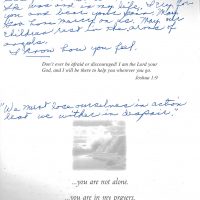 and is in my life, I cry for
you and bear your pain. May
God have mercy on us. May our
children rest in the arms of
angels.
I know how you feel.
Don't ever be afraid or discouraged! I am the Lord your
God, and I will be there to help you wherever you go.
Joshua 1:9
"We must lose ourselves in action
lest we wither in despair."
...you are not alone.
...you are in my prayers.